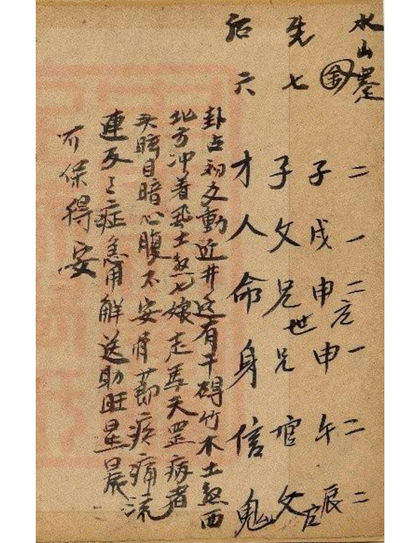 水山蹇 二 一 二 一 二 二
金 子 戌 申 申 午 辰
先七 子 父 兄 世 兄 官 父
后六 才 人 命 身 信 鬼
卦占初爻動近井边有干碍竹木土煞西
北方冲着 土煞七娘走馬天罡病者
头眩目暗心腹不安骨節疼痛流
連反之症急用解送助旺星晨
可保得安